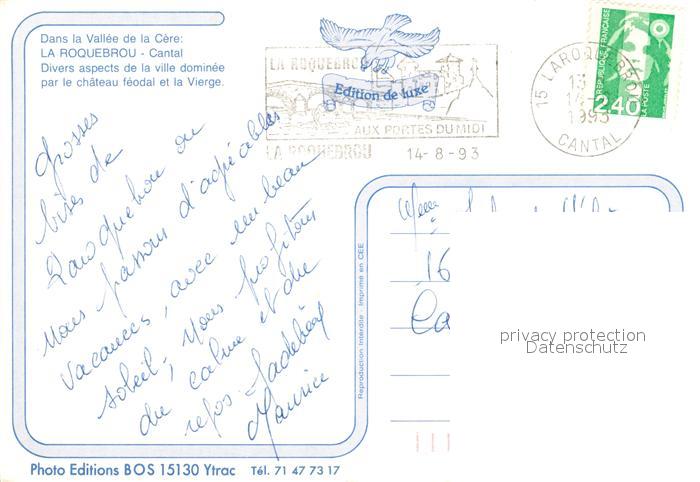 Dans la Vallée de la Cère:
LA ROQUEBROU - Cantal
Divers aspects de la ville dominée
par le château féodal et la Vierge.
LA ROQUEBROU
Edition de luxe
AUX PORTES DU MIDI
LA ROQUEBROU 14-8-93
15 LAROQUEBROU
13 H
14-8
1993
CANTAL
REPUBLIQUE FRANÇAISE
2,40
LA POSTE
Grosses
bises de
Laroquebrou ou
nous passons d'agréables
vacances, avec un beau
soleil, nous profitons
du calme et du
repos
Maurice
Reproduction Interdite - Imprimé en CEE
Mme
16
privacy protection
Datenschutz
Photo Editions BOS 15130 Ytrac Tél. 71 47 73 17